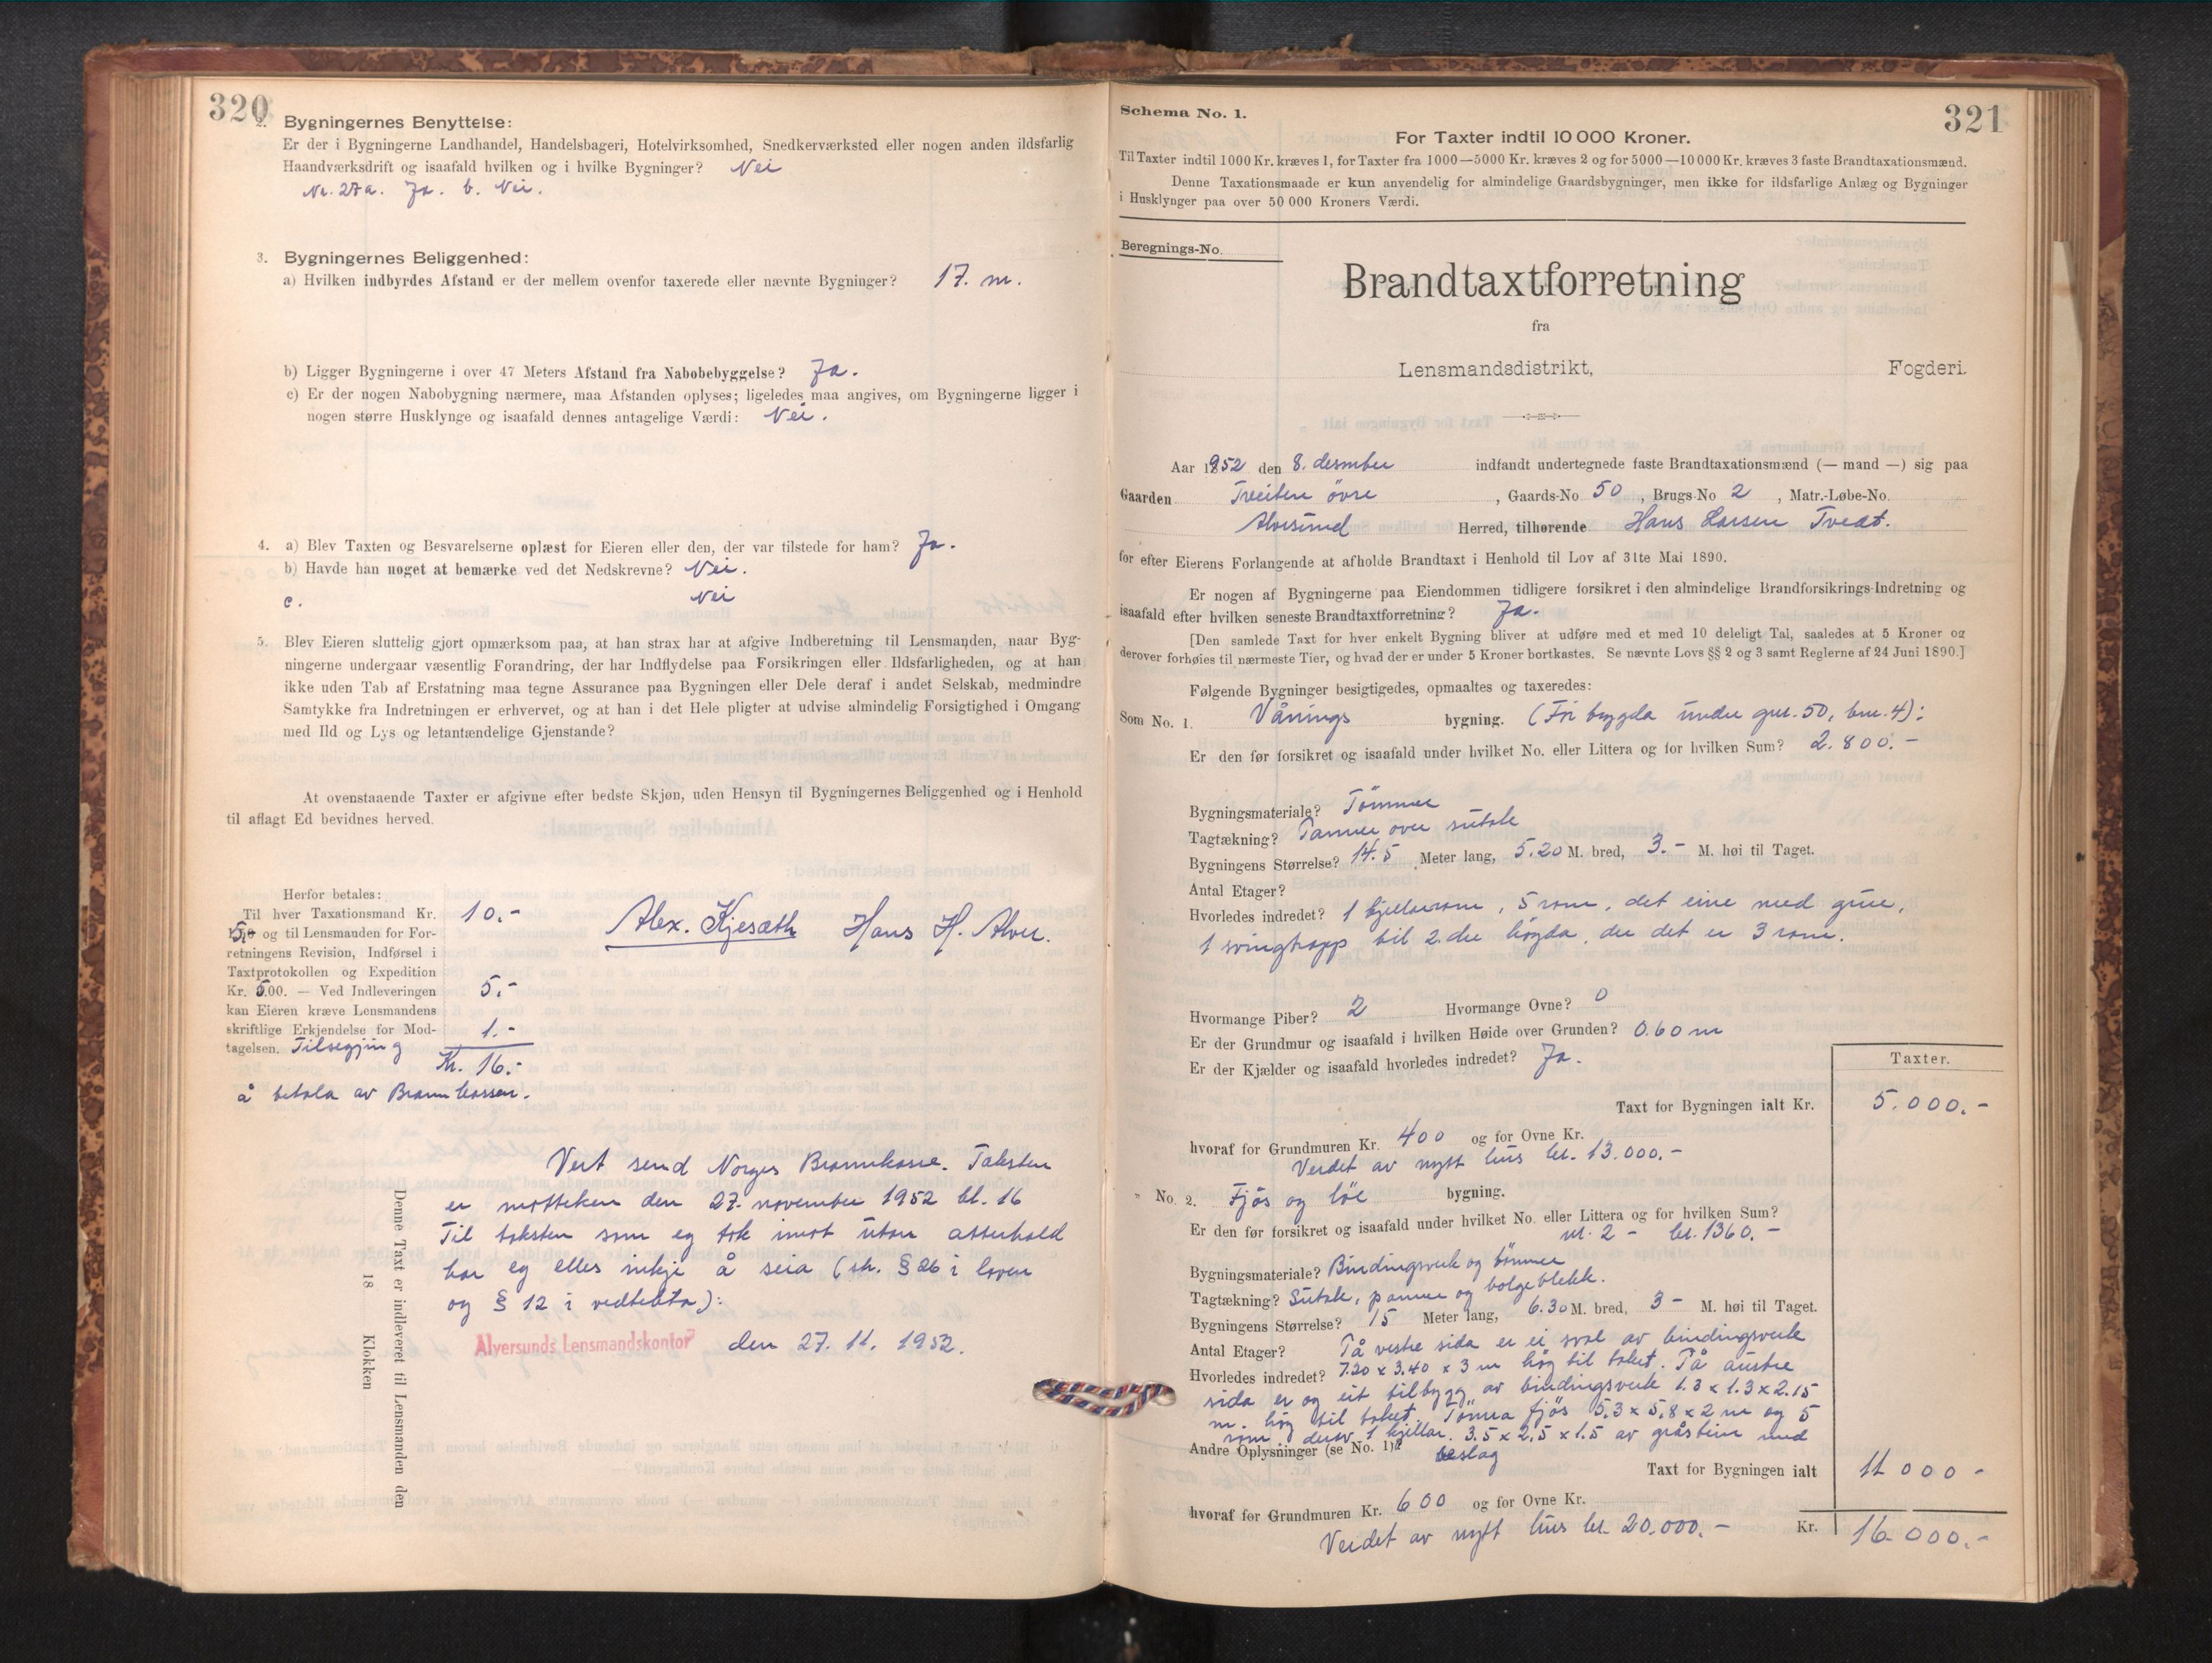 320
2. Bygningernes Benyttelse:
Er der i Bygningerne Landhandel, Handelsbageri, Hotelvirksomhed, Snedkerværksted eller nogen anden ildsfarlig
Haandværksdrift og isaafald hvilken og i hvilke Bygninger? Nei
Nr. 27a. Ja. b. Nei.
3. Bygningernes Beliggenhed:
a) Hvilken indbyrdes Afstand er der mellem ovenfor taxerede eller nævnte Bygninger? 17. m.
b) Ligger Bygningerne i over 47 Meters Afstand fra Nabobebyggelse? Ja.
c) Er der nogen Nabobygning nærmere, maa Afstanden oplyses; ligeledes maa angives, om Bygningerne ligger i
nogen større Husklynge og isaafald dennes antagelige Værdi: Nei.
4. a) Blev Taxten og Besvarelserne oplæst for Eieren eller den, der var tilstede for ham? Ja.
b) Havde han noget at bemærke ved det Nedskrevne? Nei.
c. Nei
5. Blev Eieren sluttelig gjort opmærksom paa, at han strax har at afgive Indberetning til Lensmanden, naar Byg-
ningerne undergaar væsentlig Forandring, der har Indflydelse paa Forsikringen eller Ildsfarligheden, og at han
ikke uden Tab af Erstatning maa tegne Assurance paa Bygningen eller Dele deraf i andet Selskab, medmindre
Samtykke fra Indretningen er erhvervet, og at han i det Hele pligter at udvise almindelig Forsigtighed i Omgang
med Ild og Lys og letantændelige Gjenstande?
At ovenstaaende Taxter er afgivne efter bedste Skjøn, uden Hensyn til Bygningernes Beliggenhed og i Henhold
til aflagt Ed bevidnes herved.
Herfor betales:
Til hver Taxationsmand Kr. 10.-
og til Lensmanden for For-
retningens Revision, Indførsel i
Taxtprotokollen og Expedition
Kr. 5.00. — Ved Indleveringen 5.-
kan Eieren kræve Lensmandens
skriftlige Erkjendelse for Mod- 1.-
tagelsen. Tilsegjing
Kr. 16.-
å betala av Brannkassen.
Alex. Kjesæth Hans H. Alver.
Vert send Norges Brannkasse. Taksten
er motteken den 27. november 1952 kl. 16
Til taksten som eg tok imot utan atterhald
har eg elles inkje å seia (sh. § 26 i loven
og § 12 i vedtekta):
Alversunds Lensmandskontor den 27. 11. 1952.
Denne Taxt er indleveret til Lensmanden den
18 Klokken
321
Schema No. 1.
For Taxter indtil 10 000 Kroner.
Til Taxter indtil 1000 Kr. kræves 1, for Taxter fra 1000—5000 Kr. kræves 2 og for 5000—10 000 Kr. kræves 3 faste Brandtaxationsmænd.
Denne Taxationsmaade er kun anvendelig for almindelige Gaardsbygninger, men ikke for ildsfarlige Anlæg og Bygninger
i Husklynger paa over 50 000 Kroners Værdi.
Beregnings-No.
Brandtaxtforretning
fra
Lensmandsdistrikt, Fogderi.
Aar 1952 den 8. desember indfandt undertegnede faste Brandtaxationsmænd (— mand —) sig paa
Gaarden Tveiten övre, Gaards-No 50, Brugs-No 2, Matr.-Løbe-No.
Alversund Herred, tilhørende Hans Larsen Tveit.
for efter Eierens Forlangende at afholde Brandtaxt i Henhold til Lov af 31te Mai 1890.
Er nogen af Bygningerne paa Eiendommen tidligere forsikret i den almindelige Brandforsikrings-Indretning og
isaafald efter hvilken seneste Brandtaxtforretning? Ja.
[Den samlede Taxt for hver enkelt Bygning bliver at udføre med et med 10 deleligt Tal, saaledes at 5 Kroner og
derover forhøies til nærmeste Tier, og hvad der er under 5 Kroner bortkastes. Se nævnte Lovs §§ 2 og 3 samt Reglerne af 24 Juni 1890.]
Følgende Bygninger besigtigedes, opmaaltes og taxeredes:
Som No. 1. Vånings bygning. (Før bygda under gnr. 50, bnr. 4):
Er den før forsikret og isaafald under hvilket No. eller Littera og for hvilken Sum? 2.800.-
Bygningsmateriale? Tömmer
Tagtækning? Panner over sutak
Bygningens Størrelse? 14.5 Meter lang, 5.20 M. bred, 3.- M. høi til Taget.
Antal Etager?
Hvorledes indredet? 1 kjellarrom, 5 rom, det eine med grue,
1 svingtrapp til 2. dre högda, der det er 3 rom.
Hvormange Piber? 2 Hvormange Ovne? 0
Er der Grundmur og isaafald i hvilken Høide over Grunden? 0.60 m
Er der Kjælder og isaafald hvorledes indredet? Ja.
Taxter.
Taxt for Bygningen ialt Kr. 5.000.-
hvoraf for Grundmuren Kr. 400 og for Ovne Kr.
Verdet av nytt hus kr. 13.000.-
" No. 2. Fjös og löe bygning.
Er den før forsikret og isaafald under hvilket No. eller Littera og for hvilken Sum?
nr. 2 - kr. 1360.-
Bygningsmateriale? Bindingsverk og tömmer
Tagtækning? Sutak, panner og bölgeblekk.
Bygningens Størrelse? 15 Meter lang, 6.30 M. bred, 3- M. høi til Taget.
Antal Etager? På vestre sida er ei sval av bindingsverk
Hvorledes indredet? 7.20 x 3.40 x 3 m hög til taket. På austre
sida er og eit tilbygg av bindingsverk 1.3 x 1.3 x 2.15
m. hög til taket. Tömra fjös 5.3 x 5,8 x 2 m og 5
rom, derav 1 kjellar. 3.5 x 2,5 x 1.5 av gråstein med
Andre Oplysninger (se No. 1)? beslag
Taxt for Bygningen ialt 11 000-
hvoraf for Grundmuren Kr. 600 og for Ovne Kr.
Verdet av nytt hus kr. 20.000.- Kr. 16.000.-